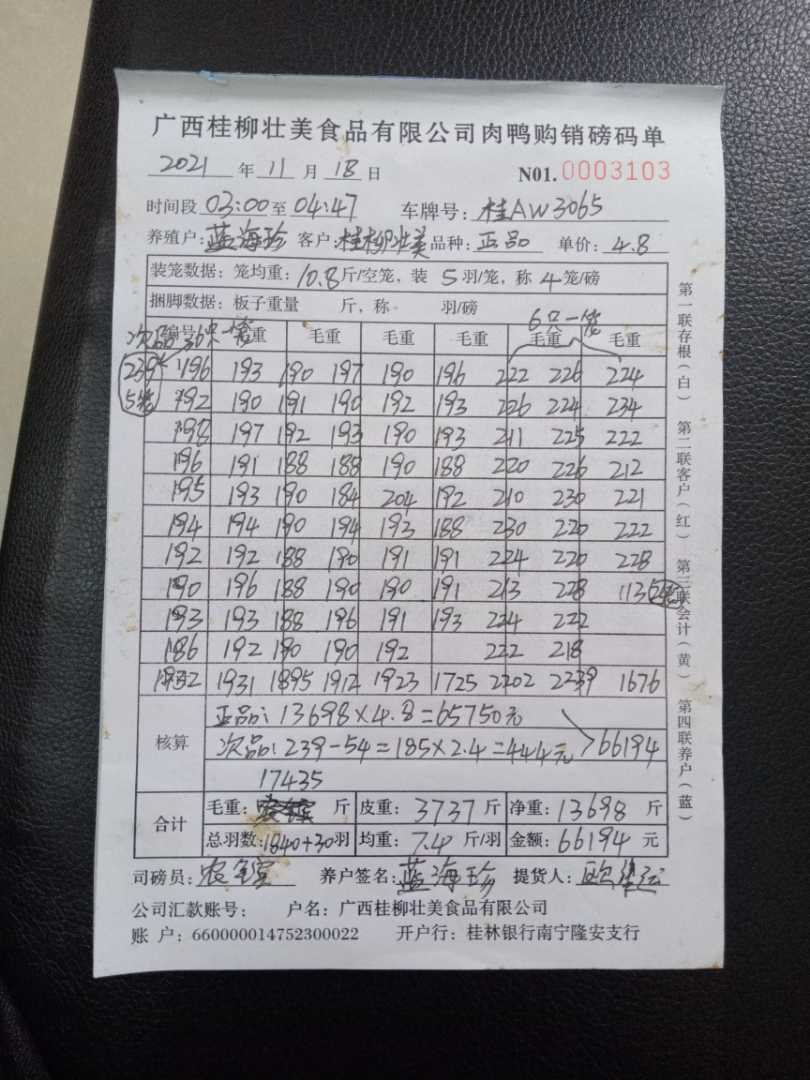 广西桂柳壮美食品有限公司肉鸭购销磅码单
2021 年 11 月 18 日 N01. 0003103
时间段 03:00 至 04:47 车牌号: 桂AW3065
养殖户: 蓝海珍 客户: 桂柳壮美 品种: 正品 单价: 4.8
装笼数据: 笼均重: 10.8 斤/空笼, 装 5 羽/笼, 称 4 笼/磅
捆脚数据: 板子重量 斤, 称 羽/磅
6只一笼
次品 30只一笼
编号 毛重 毛重 毛重 毛重 毛重 毛重
239 196 193 190 197 190 196 222 226 224
5笼 192 190 191 190 192 193 226 224 234
198 197 192 193 190 193 211 225 222
196 191 188 188 190 188 220 226 212
195 193 190 184 204 192 210 230 221
194 194 190 194 193 188 230 220 222
192 192 188 190 191 191 224 220 228
190 196 188 190 190 191 213 228 113
193 193 188 196 191 193 224 222
186 192 190 190 192 222 218
1932 1931 1895 1912 1923 1725 2202 2239 1676
核算
正品: 13698×4.8=65750元
次品: 239-54=185×2.4=444元 >66194
17435
合计
毛重: 斤 皮重: 3737 斤 净重: 13698 斤
总羽数: 1840+30 羽 均重: 7.4 斤/羽 金额: 66194 元
司磅员: 养户签名: 蓝海珍 提货人:
公司汇款账号: 户名: 广西桂柳壮美食品有限公司
账 户: 660000014752300022 开户行: 桂林银行南宁隆安支行
第一联存根(白) 第二联客户(红) 第三联会计(黄) 第四联养户(蓝)